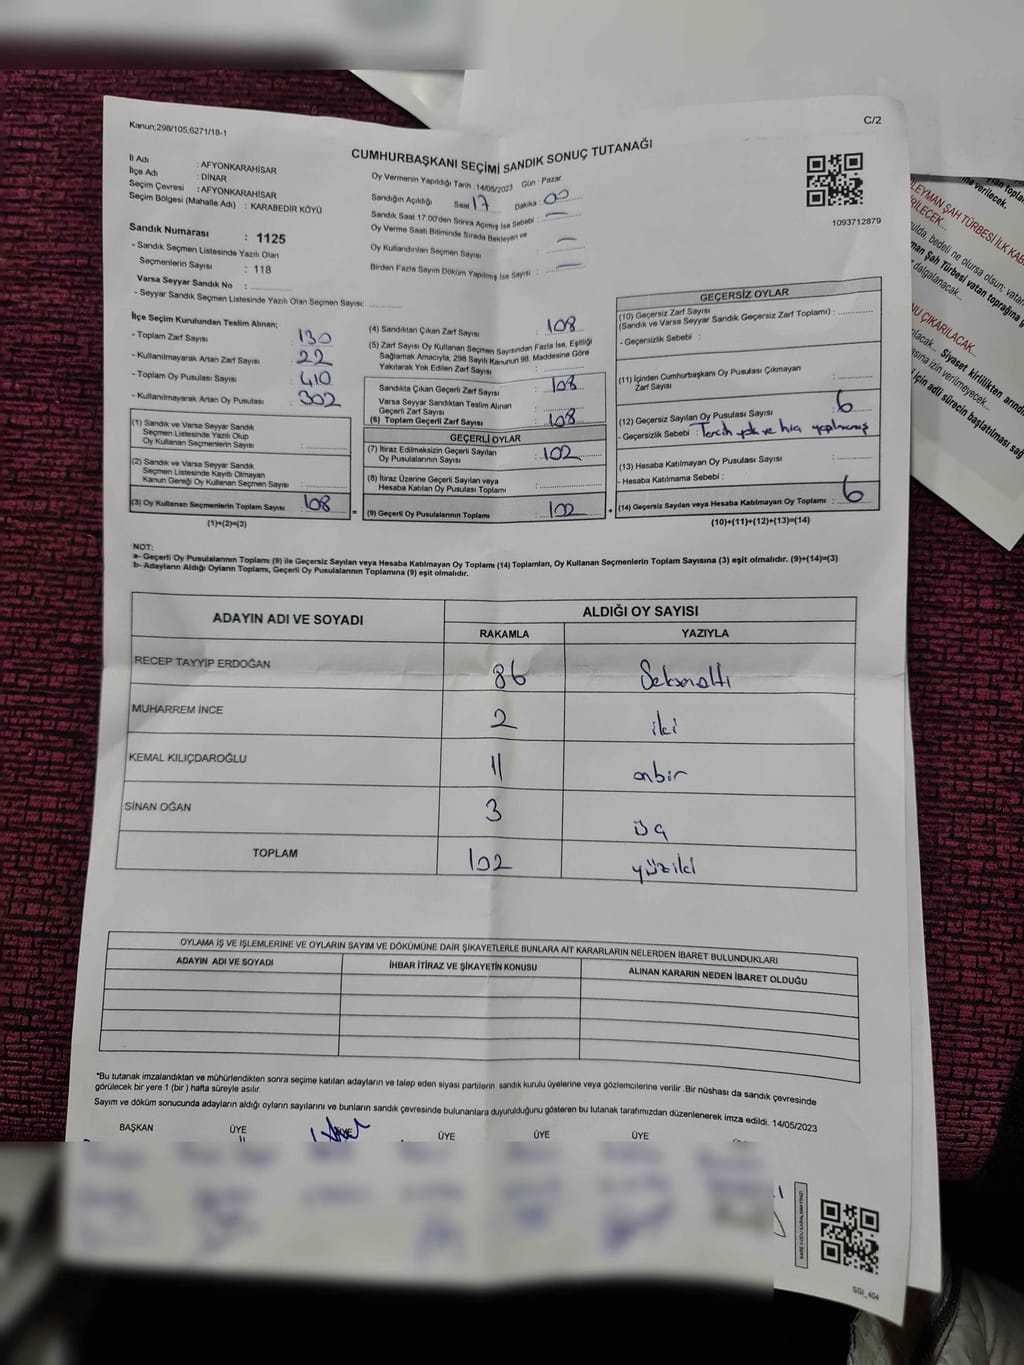 Kanun;298/105,6271/18-1
C/2
CUMHURBAŞKANI SEÇİMİ SANDIK SONUÇ TUTANAĞI
İl Adı : AFYONKARAHİSAR
İlçe Adı : DİNAR
Seçim Çevresi : AFYONKARAHİSAR
Seçim Bölgesi (Mahalle Adı) : KARABEDİR KÖYÜ
Sandık Numarası : 1125
- Sandık Seçmen Listesinde Yazılı Olan
Seçmenlerin Sayısı : 118
Varsa Seyyar Sandık No :
- Seyyar Sandık Seçmen Listesinde Yazılı Olan Seçmen Sayısı:
Oy Vermenin Yapıldığı Tarih : 14/05/2023 Gün : Pazar
Sandığın Açıldığı Saat 17 Dakika : 00
Sandık Saat 17:00'den Sonra Açılmış İse Sebebi :
Oy Verme Saati Bitiminde Sırada Bekleyen ve
Oy Kullandırılan Seçmen Sayısı :
Birden Fazla Sayım Döküm Yapılmış İse Sayısı :
1093712879
İlçe Seçim Kurulundan Teslim Alınan;
- Toplam Zarf Sayısı : 130
- Kullanılmayarak Artan Zarf Sayısı : 22
- Toplam Oy Pusulası Sayısı : 410
- Kullanılmayarak Artan Oy Pusulası : 302
(1) Sandık ve Varsa Seyyar Sandık
Seçmen Listesinde Yazılı Olup
Oy Kullanan Seçmenlerin Sayısı :
(2) Sandık ve Varsa Seyyar Sandık
Seçmen Listesinde Kayıtlı Olmayan
Kanun Gereği Oy Kullanan Seçmen Sayısı :
(3) Oy Kullanan Seçmenlerin Toplam Sayısı : 108
(1)+(2)=(3)
(4) Sandıktan Çıkan Zarf Sayısı : 108
(5) Zarf Sayısı Oy Kullanan Seçmen Sayısından Fazla İse, Eşitliği
Sağlamak Amacıyla, 298 Sayılı Kanunun 98. Maddesine Göre
Yakılarak Yok Edilen Zarf Sayısı :
Sandıkta Çıkan Geçerli Zarf Sayısı : 108
Varsa Seyyar Sandıktan Teslim Alınan
Geçerli Zarf Sayısı :
(6) Toplam Geçerli Zarf Sayısı : 108
GEÇERLİ OYLAR
(7) İtiraz Edilmeksizin Geçerli Sayılan
Oy Pusulalarının Sayısı : 102
(8) İtiraz Üzerine Geçerli Sayılan veya
Hesaba Katılan Oy Pusulası Toplamı :
(9) Geçerli Oy Pusulalarının Toplamı : 102
GEÇERSİZ OYLAR
(10) Geçersiz Zarf Sayısı
(Sandık ve Varsa Seyyar Sandık Geçersiz Zarf Toplamı) :
- Geçersizlik Sebebi :
(11) İçinden Cumhurbaşkanı Oy Pusulası Çıkmayan
Zarf Sayısı :
(12) Geçersiz Sayılan Oy Pusulası Sayısı : 6
- Geçersizlik Sebebi : Tercih yok ve
(13) Hesaba Katılmayan Oy Pusulası Sayısı :
- Hesaba Katılmama Sebebi :
(14) Geçersiz Sayılan veya Hesaba Katılmayan Oy Toplamı : 6
(10)+(11)+(12)+(13)=(14)
NOT:
a- Geçerli Oy Pusulalarının Toplamı (9) ile Geçersiz Sayılan veya Hesaba Katılmayan Oy Toplamı (14) Toplamları, Oy Kullanan Seçmenlerin Toplam Sayısına (3) eşit olmalıdır. (9)+(14)=(3)
b- Adayların Aldığı Oyların Toplamı, Geçerli Oy Pusulalarının Toplamına (9) eşit olmalıdır.
ADAYIN ADI VE SOYADI ALDIĞI OY SAYISI
RAKAMLA YAZIYLA
RECEP TAYYİP ERDOĞAN 86 Seksenaltı
MUHARREM İNCE 2 iki
KEMAL KILIÇDAROĞLU 11 onbir
SİNAN OĞAN 3 üç
TOPLAM 102 yüziki
OYLAMA İŞ VE İŞLEMLERİNE VE OYLARIN SAYIM VE DÖKÜMÜNE DAİR ŞİKAYETLERLE BUNLARA AİT KARARLARIN NELERDEN İBARET BULUNDUKLARI
ADAYIN ADI VE SOYADI İHBAR İTİRAZ VE ŞİKAYETİN KONUSU ALINAN KARARIN NEDEN İBARET OLDUĞU
*Bu tutanak imzalandıktan ve mühürlendikten sonra seçime katılan adayların ve talep eden siyasi partilerin sandık kurulu üyelerine veya gözlemcilerine verilir .Bir nüshası da sandık çevresinde
görülecek bir yere 1 (bir ) hafta süreyle asılır.
Sayım ve döküm sonucunda adayların aldığı oyların sayılarını ve bunların sandık çevresinde bulunanlara duyurulduğunu gösteren bu tutanak tarafımızdan düzenlenerek imza edildi. 14/05/2023
BAŞKAN ÜYE ÜYE ÜYE ÜYE ÜYE
LEYMAN ŞAH TÜRBESİ İLK KAB
bedeli ne olursa olsun; vatan
man Şah Türbesi vatan toprağına
dalgalanacak...
ÇIKARILACAK...
Siyaset kirlilikten arındı
izin verilmeyecek..
için adli sürecin başlatılması sağ